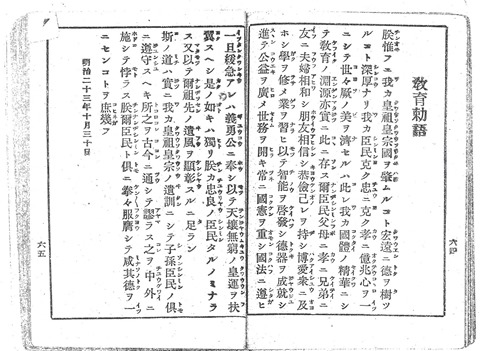 教育勅語
朕惟フニ我カ皇祖皇宗國ヲ肇ムルコト宏遠ニ德ヲ樹ツ
ルコト深厚ナリ我カ臣民克ク忠ニ克ク孝ニ億兆心ヲ一
ニシテ世々厥ノ美ヲ濟セルハ此レ我カ國體ノ精華ニシ
テ教育ノ淵源亦實ニ此ニ存ス爾臣民父母ニ孝ニ兄弟ニ
友ニ夫婦相和シ朋友相信シ恭儉己レヲ持シ博愛衆ニ及
ホシ學ヲ修メ業ヲ習ヒ以テ智能ヲ啓發シ德器ヲ成就シ
進テ公益ヲ廣メ世務ヲ開キ常ニ國憲ヲ重シ國法ニ遵ヒ
六四
一旦緩急アレハ義勇公ニ奉シ以テ天壤無窮ノ皇運ヲ扶
翼スヘシ是ノ如キハ獨リ朕カ忠良ノ臣民タルノミナラ
ス又以テ爾祖先ノ遺風ヲ顯彰スルニ足ラン
斯ノ道ハ實ニ我カ皇祖皇宗ノ遺訓ニシテ子孫臣民ノ俱
ニ遵守スヘキ所之ヲ古今ニ通シテ謬ラス之ヲ中外ニ
施シテ悖ラス朕爾臣民ト俱ニ拳々服膺シテ咸其德ヲ一
ニセンコトヲ庶幾フ
明治二十三年十月三十日
六五